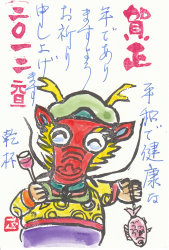 賀正
平和で健康な
年であり
ますよう
お祈り
申し上げ
ます
二〇一二
乾杯